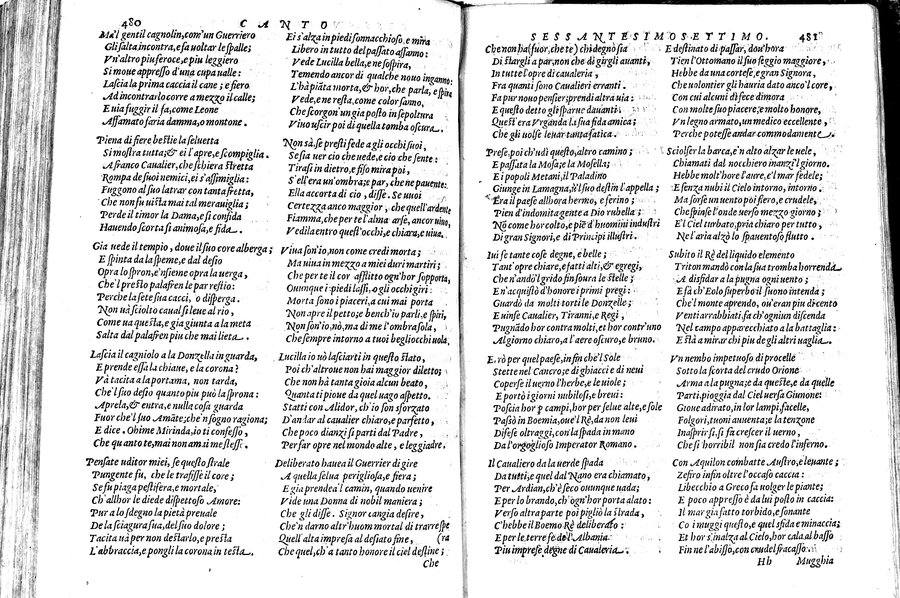 480 CANTO
Ma'l gentil cagnolin, com'un Guerriero
Gli salta incontra, e fa voltar le spalle;
Vn'altro piu feroce, e piu leggiero
Si moue appresso d'una cupa ualle:
Lascia la prima caccia il cane; e fiero
Ad incontrarlo corre a mezzo il calle;
E uia fuggir il fa, come Leone
Affamato faria damma, o montone.
Piena di fiere bestie la selvetta
Si mostra tutta; & ei l'apre, e scompiglia.
A franco Caualier, che schiera stretta
Rompa de suoi nemici, ei s'assimiglia:
Fuggono al suo latrar con tanta fretta,
Che non fu uista mai tal merauiglia;
Perde il timor la Dama, e si confida
Hauendo scorta si animosa, e fida.
Gia uede il tempio, doue il suo core alberga;
E spinta da la speme, e dal desio
Opra lo spron, e'nsieme opra la uerga,
Che'l presto palafren le par restio:
Perche la sete sua cacci, o disperga.
Non uà sciolto caual sì leue al rio,
Come ua questa, e gia giunta a la meta
Salta dal palafren piu che mai lieta.
Lascia il cagniolo a la Donzella in guarda,
E prende essa la chiaue, e la corona?
Và tacita a la porta ma, non tarda,
Che'l suo desio quanto piu può la sprona:
Aprela, & entra, e nulla cosa guarda
Fuor che'l suo Amāte; che'n sogno ragiona;
E dice. Ohime Mirinda, io ti confesso,
Che quanto te, mai non amai me stesso.
Pensate uditor miei, se questo strale
Pungente fu, che le trafisse il core;
Se fu piaga pestifera, e mortale,
Ch'allhor le diede dispettoso Amore:
Pur a lo sdegno la pietà preuale
De la sciagura sua, del suo dolore;
Tacita uà per non destarlo, e presta
L'abbraccia, e pongli la corona in testa.
Ei s'alza in piedi sonnacchioso, e mira
Libero in tutto del passato affanno:
Vede Lucilla bella, e ne sospira,
Temendo ancor di qualche nouo inganno:
L'hà piāta morta, & hor, che parla, e spira
Vede, e ne resta, come color sanno,
Che scorgon'un gia posto in sepoltura
Viuo uscir poi di quella tomba oscura.
Non sà, se presti fede a gli occhi suoi,
Se sia uer cio che uede, e cio che sente:
Tirasi in dietro, e fiso mira poi,
S'ell'era un'ombra; par, che ne pauente:
Ella accorta di cio, disse. Se uuoi
Certezza anco maggior, che quell'ardente
Fiamma, che per te l'alma arse, ancor uiuo,
Vedila entro quest'occhi, e chiara, e uiua.
Viua son'io, non come credi morta;
Ma uiua in mezzo a miei duri martiri;
Che per te il cor afflitto ogn'hor sopporta,
Ouunque i piedi lassi, o gli occhi giri:
Morta sono i piaceri, a cui mai porta
Non apre il petto; e bench'io parli, e spiri,
Non son'io, nò, ma di me l'ombra sola,
Che sempre intorno a tuoi begliocchi uola.
Lucilla io uò lasciarti in questo stato,
Poi ch'altroue non hai maggior diletto;
Che non hà tanta gioia alcun beato,
Quanta ti pioue da quel uago aspetto.
Statti con Alidor, ch'io son sforzato
D'andar al caualier chiaro, e perfetto,
Che poco dianzi si parti dal Padre,
Per far opre nel mondo alte, e leggiadre.
Deliberato hauea il Guerrier di gire
A quella selua perigliosa, e fiera;
E gia prendea l'camin, quando uenire
Vide una Donna di nobil maniera;
Che gli disse. Signor cangia desire,
Che'n darno altr'huom mortal di trarre spe
Quell'alta impresa al desiato fine, (ra
Che quel, ch'a tanto honore il ciel destine;
Che
SESSANTESIMOSETTIMO. 481
Che non ha (fuor, che te) chi degno sia
Di starglì a par, non che di girglì auanti,
In tutte l'opre di caualeria,
Fra quanti sono Caualieri erranti.
Fa pur nouo pensier; prendi altra uia:
E questo detto gli sparue dauanti.
Quest'era Vrganda la sua fida amica;
Che gli uolse leuar tanta fatica.
Prese, poi ch'udì questo, altro camino;
E passata la Mosa; e la Mosella;
Ei popoli Metani, il Paladino
Giunge in Lamagna, ū'l suo destin l'appella;
Era il paese allhora hermo, e ferino;
Pien d'indomita gente a Dio rubella;
Nō come hor colto, e piē d'huomini industri
Di gran Signori, e di Principi illustri.
Iui fe tante cose degne, e belle;
Tant'opre chiare, e fatti alti, & egregi,
Che n'andò'l grido sin soura le stelle;
E n'acquistò d'honore i primi pregi:
Guardò da molti torti le Donzelle;
E uinse Caualier, Tiranni, e Regi,
Pugnādo hor contra molti, et hor contr'uno
Al giorno chiaro, a l'aere oscuro, e bruno.
Errò per quel paese, in fin che'l Sole
Stette nel Cancro; e di ghiacci e di neui
Coperse il uerno l'herbe, e le uiole;
E portò i giorni nubilosi, e breui:
Poscia hor p campi, hor per selue alte, e sole
Passò in Boemia, oue'l Rè, da non leui
Difese oltraggi, con la spada in mano
Dal'orgoglioso Imperator Romano.
Il Caualiero da la uerde spada
Da tutti, e quel dal Nano era chiamato,
Per Ardian, ch'è seco ouunque uada;
E per lo brando, ch'ogn'hor porta alato:
Verso altra parte poi pigliò la strada,
C'hebbe il Boemo Rè deliberato:
E per le terre de l'Albania
Piu imprese degne di Caualeria.
E destinato di passar, dou'hora
Tien l'Ottomano il suo seggio maggiore,
Hebbe da una cortese, e gran Signora,
Che uolontier gli hauria dato anco'l core,
Con cui alcuni dì fece dimora
Con molte suo piacere, e molto honore,
Vn legno armato, un medico eccellente,
Perche potesse andar commodamente.
Sciolser la barca, e'n alto alzar le uele,
Chiamati dal nocchiero inanzi'l giorno.
Hebbe molt'hore l'aure, e'l mar fedele;
E senza nubi il Cielo intorno, intorno.
Ma sorse un uento poi fiero, e crudele,
Che spinse l'onde uerso mezzo giorno;
E'l Ciel turbato, pria chiaro per tutto,
Ne l'aria alzò lo spauentoso flutto.
Subito il Rè del liquido elemento
Triton mandò con la sua tromba horrenda
A disfidar a la pugna ogni uento;
E fà ch'Eolo superbo il suono intenda;
Che'l monte aprendo, ou'eran piu di cento
Venti arrabbiati, fa ch'ogniun discenda
Nel campo apparecchiato a la battaglia:
E stà a mirar chi piu de gli altri uaglia.
Vn nembo impetuoso di procelle
Sotto la scorta del crudo Orione
Arma a la pugna; e da queste, e da quelle
Parti, pioggia dal Ciel uersa Giunone:
Gioue adirato, in lor lampi, facelle,
Folgori, tuoni auenta; e la tenzone
Inasprir sì, sì fa crescer il uerno,
Che sì horribil non sia credo l'inferno.
Con Aquilon combatte Austro, e leuante;
Zefiro insin oltre l'occaso caccia
Libecchio a Greco fa uolger le piante;
E poco appresso è da lui posto in caccia:
Il mar gia fatto torbido, e sonante
Co i muggi questo, e quel sfida e minaccia;
Et hor s'inalza al Cielo, hor cala al basso
Fin ne l'abisso, con crudel fracasso.
Hh Mugghia